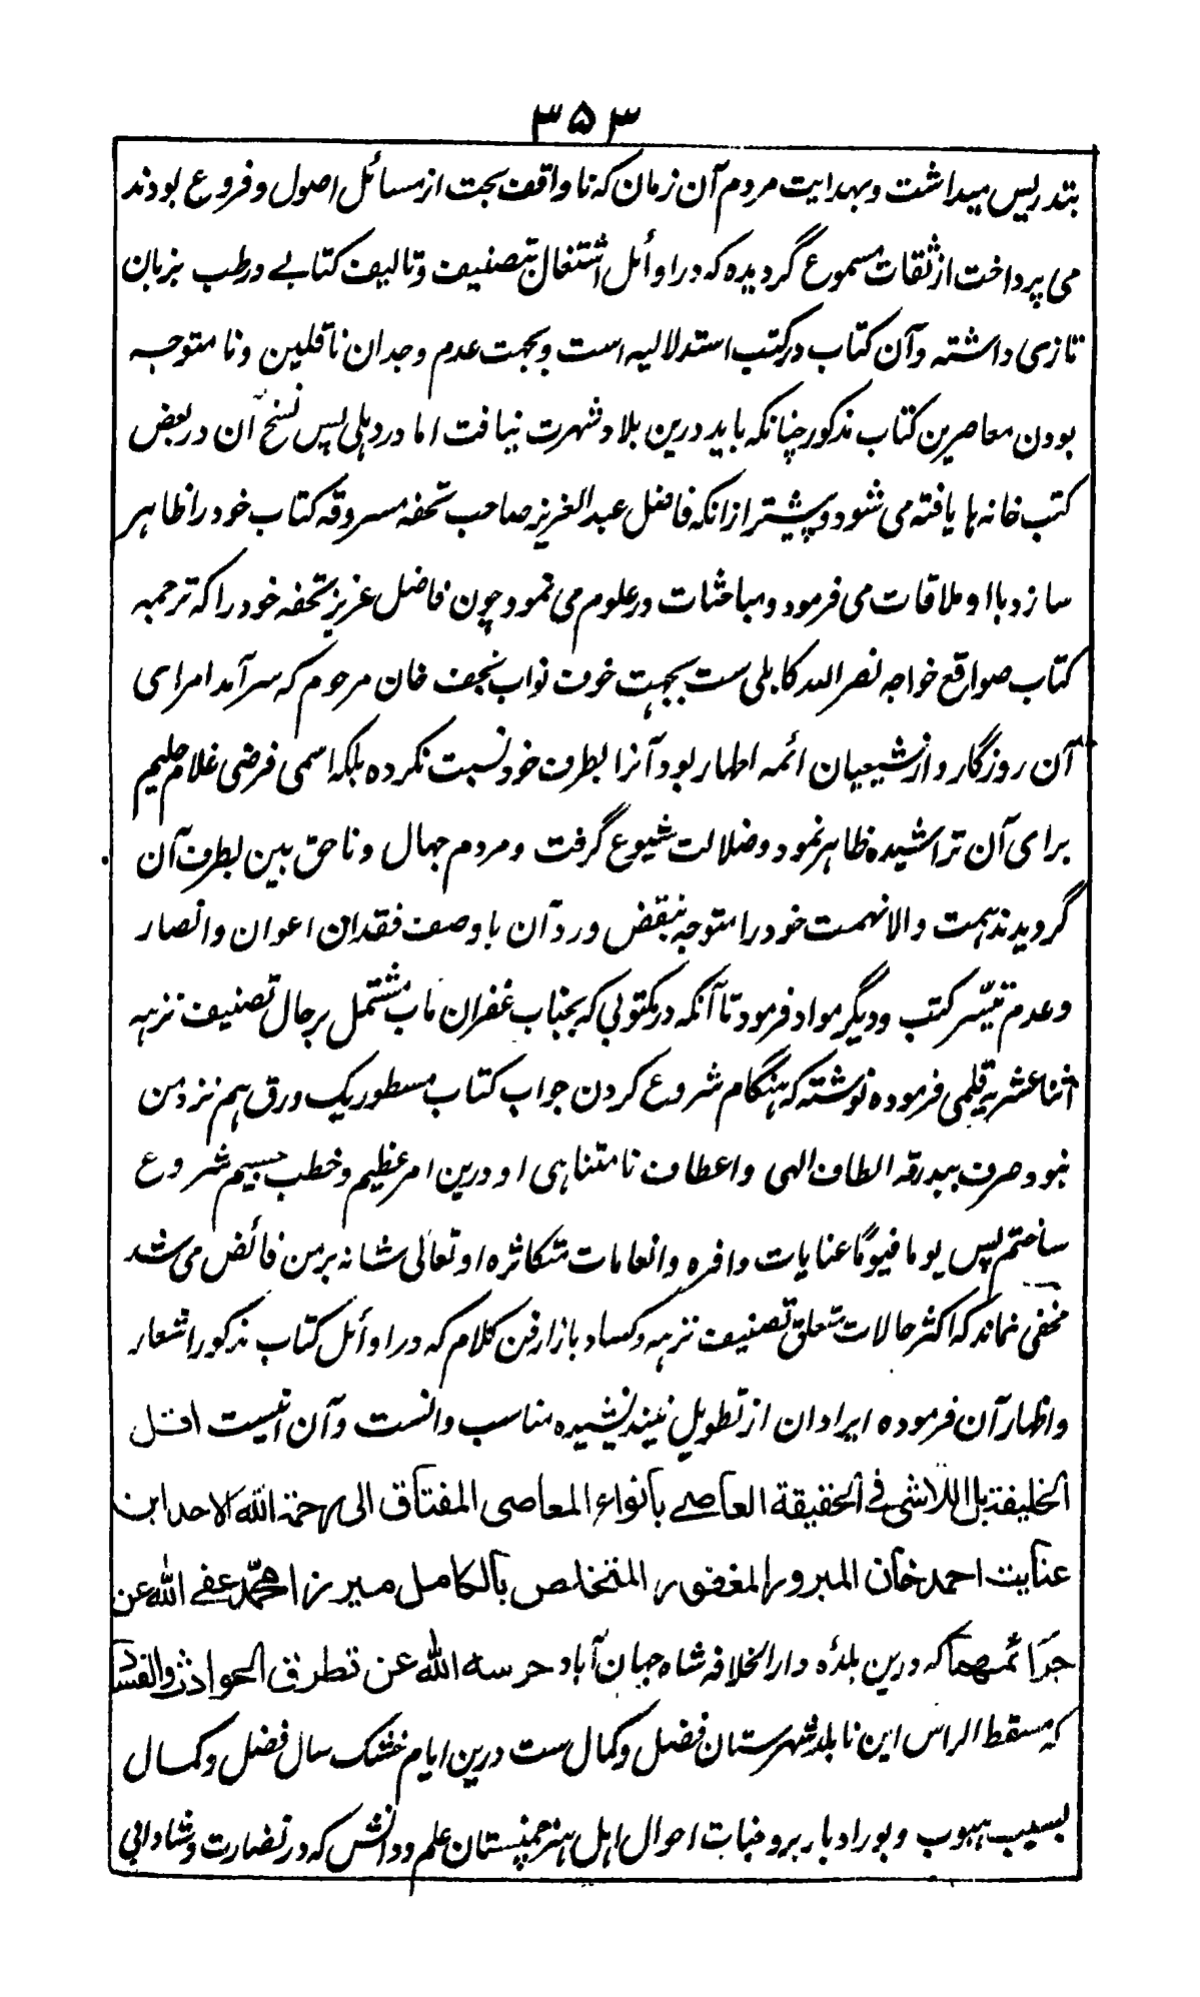 ۳۵۳
بتدریس میداشت و بهدایت مردم آن زمان که ناواقف بحت از مسائل اصول و فروع بودند
می پرداخت از ثقات مسموع گردیده که در اوأئل اشتغال بتصنیف و تالیف کتابے در طب بزبان
تازی داشته و آن کتاب در کتب استدلالیه است و بجهت عدم وجدان ناقلین و نا متوجه
بودن معاصرین کتاب مذکور چنانکه باید درین بلاد شهرت نیافت اما در دہلی پس نسخۂ آن در بعض
کتب خانه ہا یافته می شود و پیشتر ازانکه فاضل عبدالعزیز صاحب تحفه مسروقه کتاب خود را ظاہر
سازد با او ملاقات می فرمود و مباحثات در علوم می نمود چون فاضل عزیز تحفه خود را که ترجمه
کتاب صواقع خواجه نصر الله کابلی ست بجهت خوف نواب نجف خان مرحوم که سر آمد امرای
آن روزگار و از شیعیان ائمه اطهار بود آنرا بطرف خود نسبت نکرده بلکه اسمی فرضی غلام حلیم
برای آن تراشیده ظاہر نمود و ضلالت شیوع گرفت و مردم جهال و ناحق بین بطرف آن
گردیدند ہمت والا نهمت خود را متوجه بنقض و رد آن باوصف فقدان اعوان و انصار
و عدم تیسّر کتب و دیگر مواد فرمود تا آنکه در مکتوبی که بجناب غفران مآب مشتمل بر حال تصنیف نزہه
اثنا عشریه قلمی فرموده نوشته که ہنگام شروع کردن جواب کتاب مسطور یک ورق ہم نزد من
نبود صرف ببدرقه الطاف الهی و اعطاف نامتناہی او درین امر عظیم و خطب جسیم شروع
ساختم پس یوما فیوماً عنایات وافره و انعامات متکاثره او تعالی شانه بر من فائض می شد
مخفی نماند که اکثر حالات متعلق تصنیف نزہه و کساد بازار فن کلام که در اوأئل کتاب مذکور اشعار
و اظهار آن فرموده ایراد آن از تطویل نیندیشیده مناسب دانست و آن اینست اقل
الخلیفة بل اللاشی فی الحقیقة العاصے بانواء المعاصی المفتاق الی رحمة الله الاحد ابن
عنایت احمد خان المبرور المغفور المتخلص بالکامل میرزا محمّد عفی الله عن
جرائمهما که درین بلدۂ دار الخلافه شاه جہان آباد حرسه الله عن تطرق الحوادث والفساد
که مسقط الراس این نابلد شهرستان فضل و کمال ست درین ایام خشک سال فضل و کمال
بسبب ہبوب دبور ادبار بر وجنات احوال اہل ہنر چمنستان علم و دانش که در نضارت و شادابی